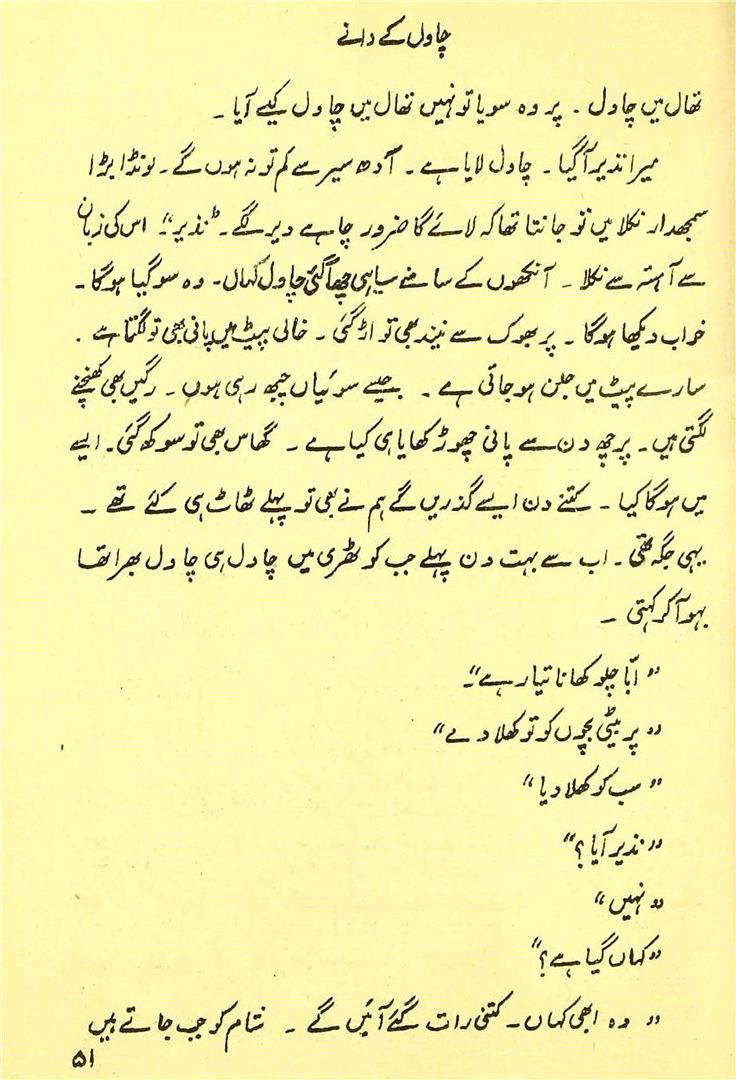 چاول کے دانے
تھال میں چاول ۔ پر وہ سویا تو نہیں تھال میں چاول کیسے آیا ۔
میرا نذیر آگیا ۔ چاول لایا ہے ۔ آدھ سیر سے کم تو نہ ہوں گے ۔ لونڈا بڑا
سمجھدار نکلا میں تو جانتا تھا کہ لائے گا ضرور چاہے دیر لگے ۔ "نذیر" ۔ اس کی زبان
سے آہستہ سے نکلا ۔ آنکھوں کے سامنے سیاہی چھا گئی چاول کہاں ۔ وہ سو گیا ہوگا ۔
خواب دیکھا ہوگا ۔ پر بھوک سے نیند بھی تو اڑ گئی ۔ خالی پیٹ میں پانی بھی تو لگتا ہے ۔
سارے پیٹ میں جلن ہو جاتی ہے ۔ جیسے سوئیاں چبھ رہی ہوں ۔ رگیں بھی کھنچنے
لگتی ہیں ۔ پر چھ دن سے پانی چھوڑ کھایا ہی کیا ہے ۔ گھاس بھی تو سوکھ گئی ۔ ایسے
میں ہوگا کیا ۔ کتنے دن ایسے گذریں گے ہم نے بھی تو پہلے ٹھاٹ ہی کئے تھے ۔
یہی جگہ تھی ۔ اب سے بہت دن پہلے جب کوٹھری میں چاول ہی چاول بھرا تھا
بہو آکر کہتی ۔
"ابّا چلو کھانا تیار ہے" ۔
"پر بیٹی بچوں کو تو کھلا دے"
"سب کو کھلا دیا"
"نذیر آیا ؟"
"نہیں"
"کہاں گیا ہے ؟"
"وہ ابھی کہاں ۔ کتنی رات گئے آئیں گے ۔ شام کو جب جاتے ہیں
۵۱